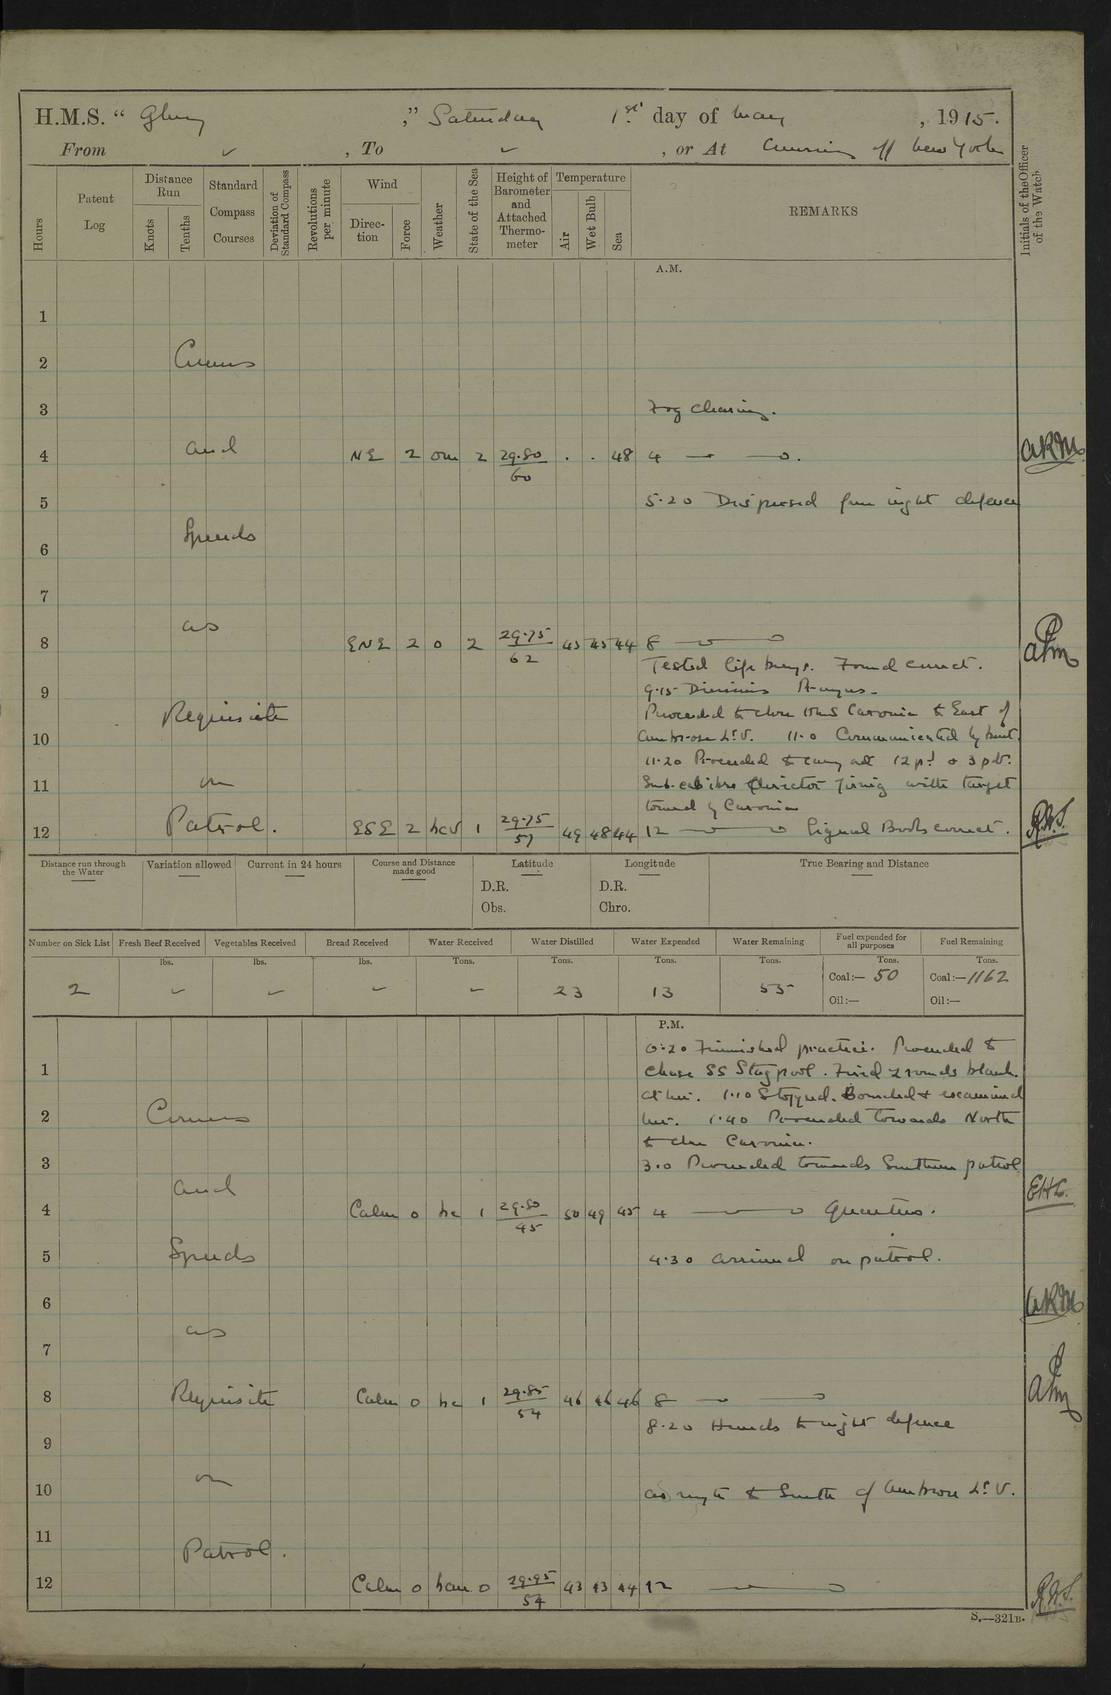 H.M.S. “ Glory ,” Saturday 1st day of May , 1915.
From ✓ , To ✓ , or At Cruising off New York
Hours
Patent Log
Distance Run
Knots
Tenths
Standard Compass Courses
Deviation of Standard Compass
Revolutions per minute
Wind
Direction
Force
Weather
State of the Sea
Height of Barometer and Attached Thermometer
Temperature
Air
Wet Bulb
Sea
REMARKS
Initials of the Officer of the Watch
A.M.
1
2 Courses
3 Fog clearing.
4 and NE 2 om 2 29.80 60 . . 48 4 ARM
5 5.20 Dispersed from night defence
6 Speeds
7
8 as ENE 2 o 2 29.75 62 45 45 44 8
Tested life buoys. Found correct.
9 9.15 Divisions Prayers.
Requisite Proceeded to close HMS Caronia to East of
10 Ambrose Lt. V. 11.0 Communicated by boat.
11.20 Proceeded to carry out 12 pr & 3 pdr.
11 on Sub-calibre director firing with target
towed by Caronia
12 Patrol. ESE 2 bcv 1 29.75 57 49 48 44 12 Signal Books correct.
Distance run through the Water
Variation allowed
Current in 24 hours
Course and Distance made good
Latitude
D.R.
Obs.
Longitude
D.R.
Chro.
True Bearing and Distance
Number on Sick List
Fresh Beef Received
Vegetables Received
Bread Received
Water Received
Water Distilled
Water Expended
Water Remaining
Fuel expended for all purposes
Fuel Remaining
lbs. lbs. lbs. Tons. Tons. Tons. Tons. Tons. Tons.
2 ✓ ✓ ✓ ✓ 23 13 55 Coal:— 50 Coal:— 1162
Oil:— Oil:—
P.M.
0.20 Finnished practice. Proceeded to
1 chase SS Stagpool. Fired 2 rounds blank
at her. 1.10 Stopped. Boarded & examined
2 Courses her. 1.40 Proceeded towards North
to close Caronia.
3 3.0 Proceeded towards Southern patrol
and EHL.
4 Calm 0 bc 1 29.80 45 50 49 45 4 Quarters.
5 Speeds 4.30 arrived on patrol.
6 ARM
7 as
8 Requisite Calm 0 bc 1 29.85 54 46 46 46 8
8.20 Hands to night defence
9
10 on as req'te to South of Ambrose Lt. V.
11
Patrol.
12 Calm 0 bcm 0 29.95 54 43 43 44 12
S.—321B.